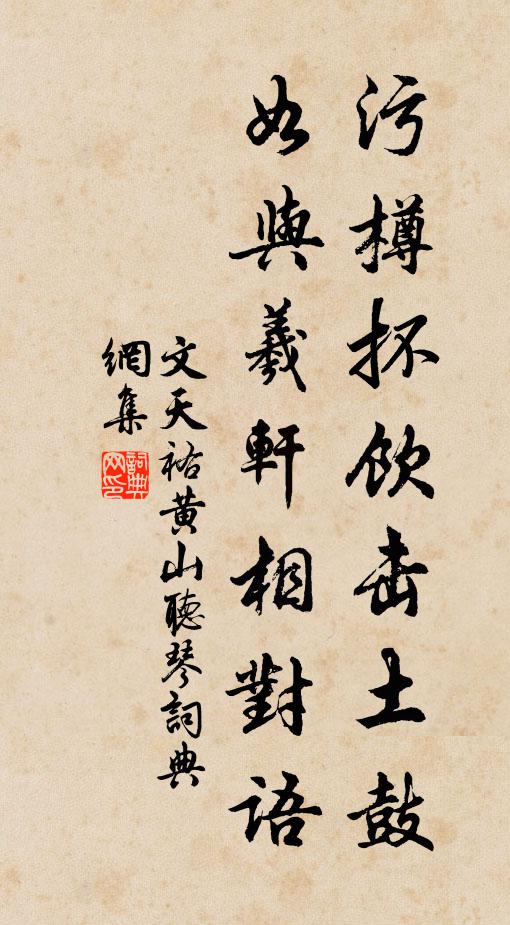 污樽抔飲击土鼓
如與羲軒相對語
文天祐黄山聽琴詞典
網集
詞典網印